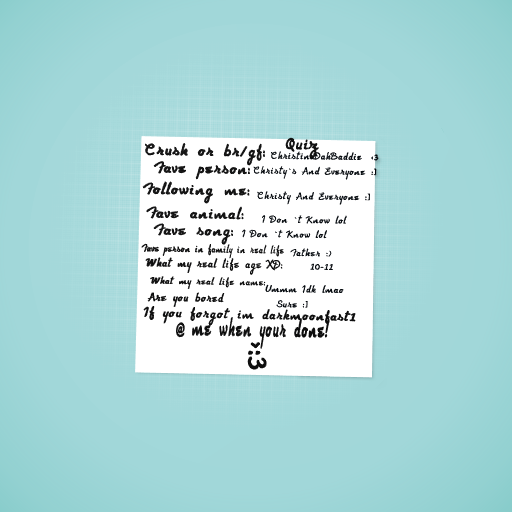 Quiz
Crush or br/gf: ChristinDahBaddie <3
Fave person: Christy`s And Everyone :]
Following me: Christy And Everyone :]
Fave animal: I Don `t Know lol
Fave song: I Don `t Know lol
Fave person in family in real life Father :)
What my real life age XD: 10-11
What my real life name: Ummm Idk lmao
Are you bored Sure :]
If you forgot im darkmoonfast1
@ me when your done!
:3